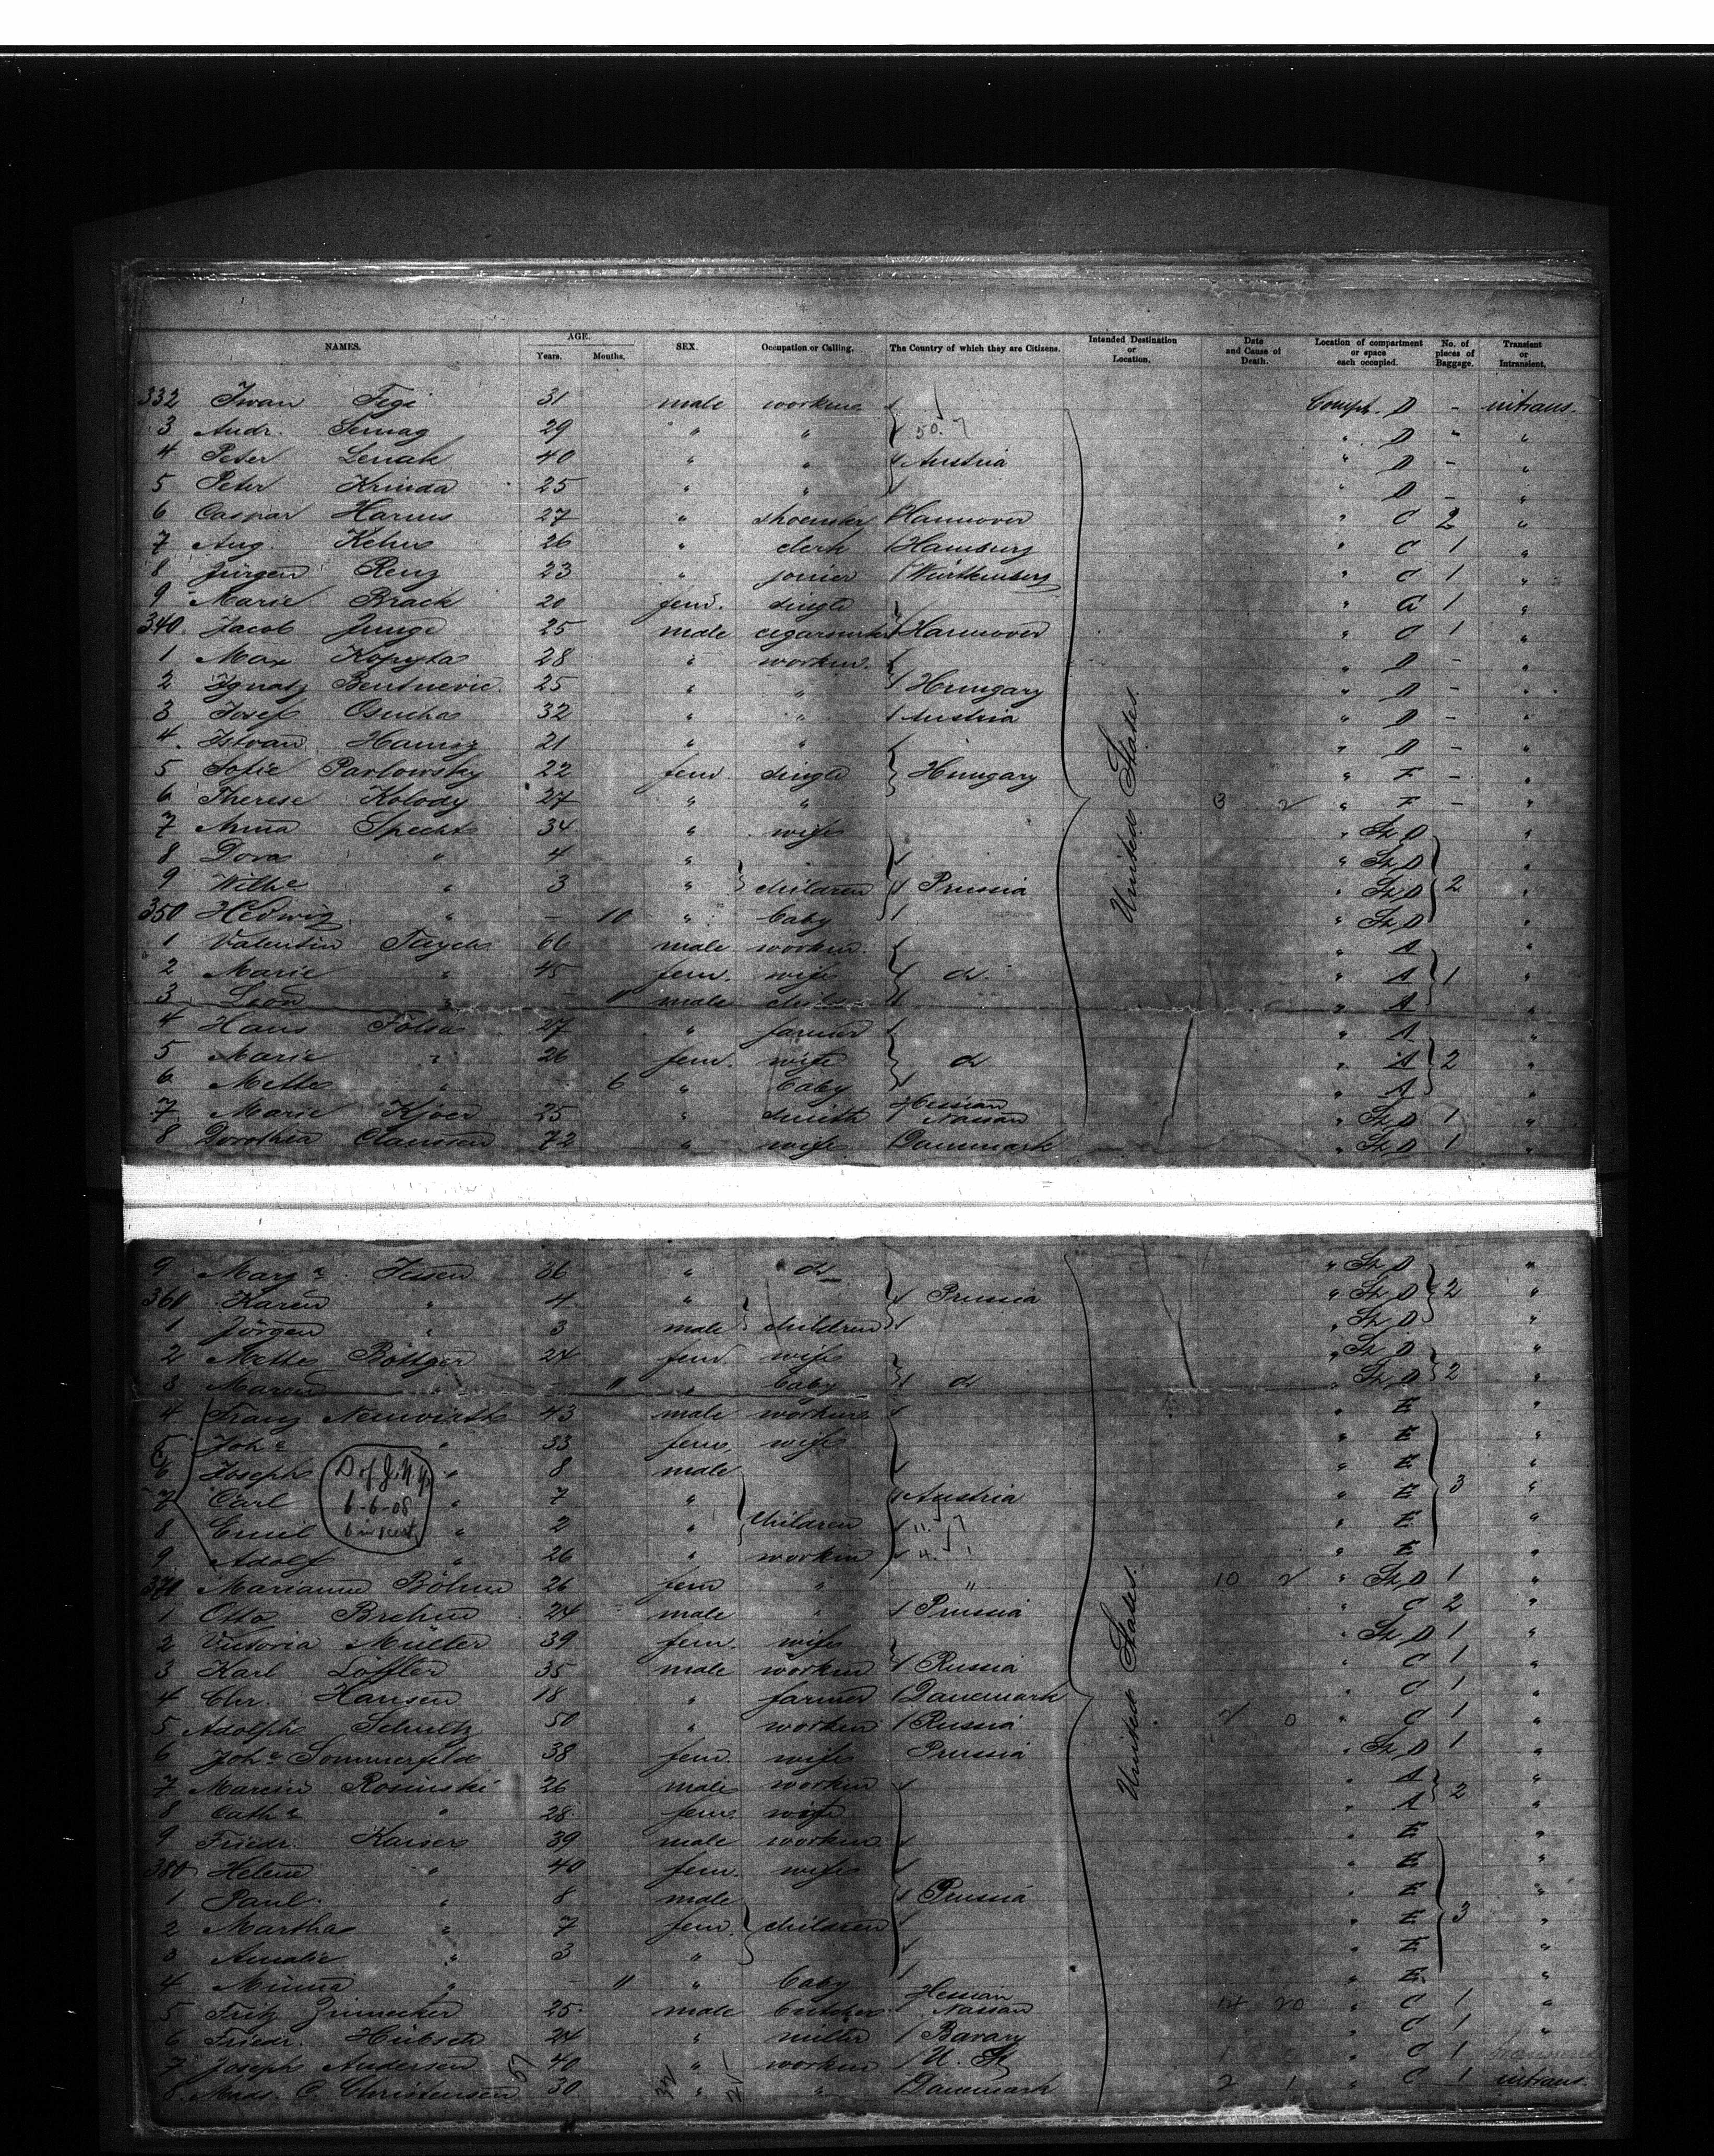 NAMES. AGE. Years. Months. SEX. Occupation or Calling. The Country of which they are Citizens. Intended Destination or Location. Date and Cause of Death. Location of compartment or space each occupied. No. of pieces of Baggage. Transient or Intransient.
332 Iwan Fegi 31 male workm. Compt. D - intrans.
3 Andr. Semag 29 " " " D " "
4 Peter Lenak 40 " " Austria " D - "
5 Peter Krinda 25 " " " D - "
6 Caspar Harms 27 " Hannover " C 2 "
7 Aug. Kehn 26 " clerk Hamburg " C 1 "
8 Jürgen Renz 23 " joiner Würtemberg " C 1 "
9 Marie Brack 20 fem. single " G 1 "
340 Jacob Junge 25 male Hannover " C 1 "
1 Max Kopyta 28 " workm. " D - "
2 Ignatz 25 " " Hungary " D - "
3 Josef Osucha 32 " " Austria " D - "
4 Istvan 21 " " " D - "
5 Sofie Parlowsky 22 fem. single Hungary " F - "
6 Therese Kolody 27 " " " F - "
7 Anna Specht 34 " wife " St. D "
8 Dora " 4 " " St. D "
9 Wilhe " 3 " children Prussia " St. D 2 "
350 Hedwig " - 10 " baby " St. D "
1 Valentin 66 male workm. " A "
2 Marie " 45 fem. wife do. " A 1 "
3 Leon " - 11 male child " A "
4 Hans Fölsa 27 " farmer " A "
5 Marie " 26 fem. wife do " A 2 "
6 Mette " 6 " baby " A "
7 Marie Kjöer 25 " smith Hessian Nassau " St. D 1 "
8 Dorothea Claussen 72 " wife Danemark " St. D 1 "
United States.
9 Marge. Jessen 36 " do " St. D "
360 Karen " 4 " Prussia " St. D 2 "
1 Jörgen " 3 male children " St. D "
2 Mette Böttger 24 fem. wife " St. D "
3 Maren " - 11 " baby do " St. D 2 "
4 Franz Neuwirth 43 male workm. " E "
5 Johe " 33 fem. wife " E "
6 Joseph " 8 male " E "
7 Carl " 7 " Austria " E 3 "
8 Emil " 2 " children " E "
9 Adolf " 26 " workm " E "
6-6-08
370 Marianne Böhm 26 fem " " 10 2 " St. D 1 "
1 Otto Brehm 24 male " Prussia " C 2 "
2 Victoria Müller 39 fem. wife " St. D 1 "
3 Karl Löffler 35 male workm Russia " C 1 "
4 Chr. Hansen 18 " farmer Danemark " C 1 "
5 Adolph Schultz 50 " workm Russia 2 0 " C 1 "
6 Johe Sommerfeld 38 fem. wife Prussia " St. D 1 "
7 Marcin Rosinski 26 male workm " A 2 "
8 Cathe " 28 fem. wife " A "
9 Friedr. Kaiser 39 male workm " E "
380 Helene " 40 fem. wife " E "
1 Paul " 8 male Prussia " E "
2 Martha " 7 fem. children " E 3 "
3 Amalie " 3 " " E "
4 Minna " - 11 " baby " E "
5 Fritz 25 male butcher Hessian Nassau 14 20 " C 1 "
6 Friedr. Hübsch 24 " miller Bavary " C 1 "
7 Joseph Andersen 40 " workm U. St. " C 1
8 Mads. C. Christensen 30 " " Danemark 2 1 " C 1 intrans.
United States.